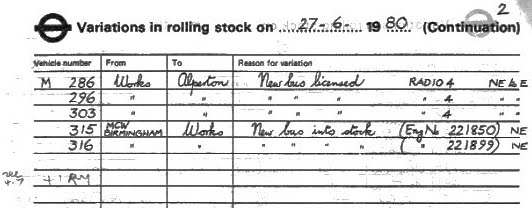 2
Variations in rolling stock on 27-6- 1980 (Continuation)
Vehicle number From To Reason for variation
M 286 Works Alperton New bus licensed RADIO 4 NE & E
296 " " " " " " 4
303 " " " " " " 4
315 MCW BIRMINGHAM Works New bus into stock (Eng No 221850) NE
316 " " " " " " ( " 221899) NE
RM